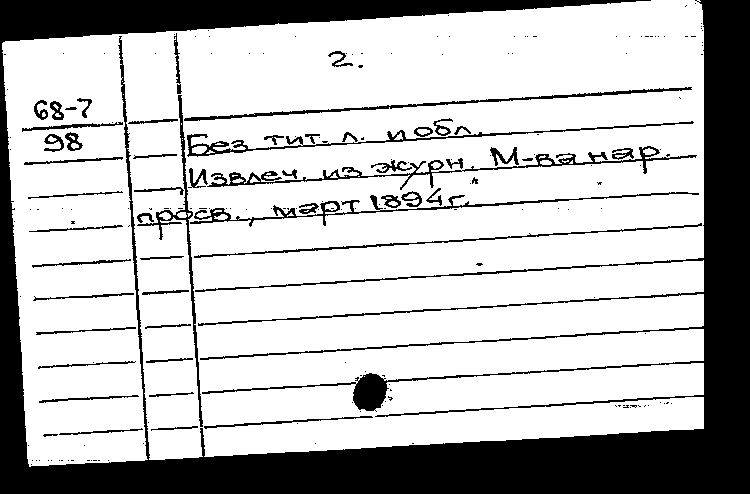 2.
68-7
98
Без тит. л. и обл.
Извлеч. из журн. М-ва нар.
просв., март 1894г.